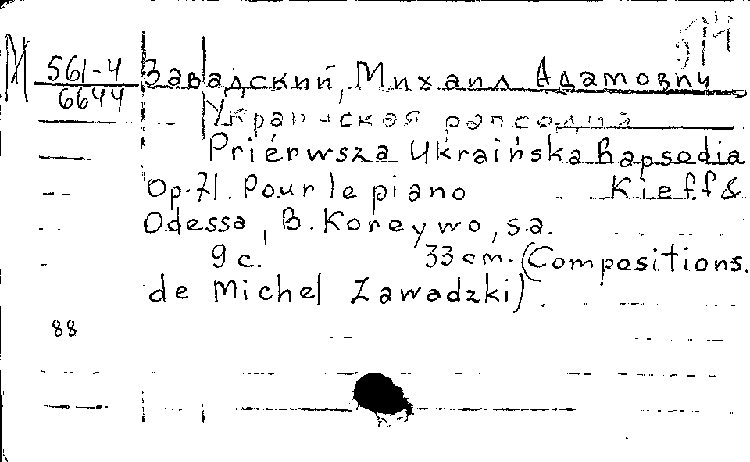 М 561-4
6644
514
Завадский, Михаил Адамович
Украинская рапсодия
Priérwsza Ukraińska Rapsodia
Op. 71. Pour le piano Kieff &
Odessa, B. Koreywo, s.a.
9 c. 33 cm. (Compositions.
de Michel Zawadzki).
88